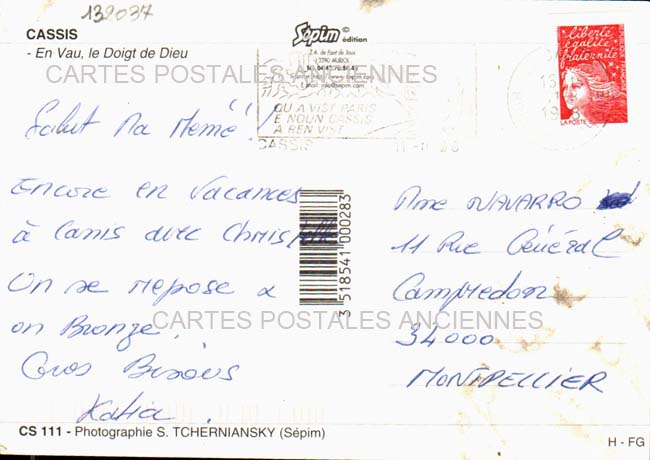 132037
CASSIS
- En Vau, le Doigt de Dieu
Sépim © édition
Z.A. de Pont de Joux
13390 AURIOL
CARTES POSTALES ANCIENNES
E mail: info@sepim.com
QU A VIST PARIS
E NOUN CASSIS
A REN VIST
CASSIS
liberté
égalité
fraternité
LA POSTE
Salut Ma Mémé !
Encore en vacances
à Cassis avec Christelle
On se repose &
on Bronze.
Gros Bisous
Katia.
3 518541 000283
Mme NAVARRO
11 Rue Général
Campredon
34000
MONTPELLIER
CARTES POSTALES ANCIENNES
CS 111 - Photographie S. TCHERNIANSKY (Sépim)
H - FG